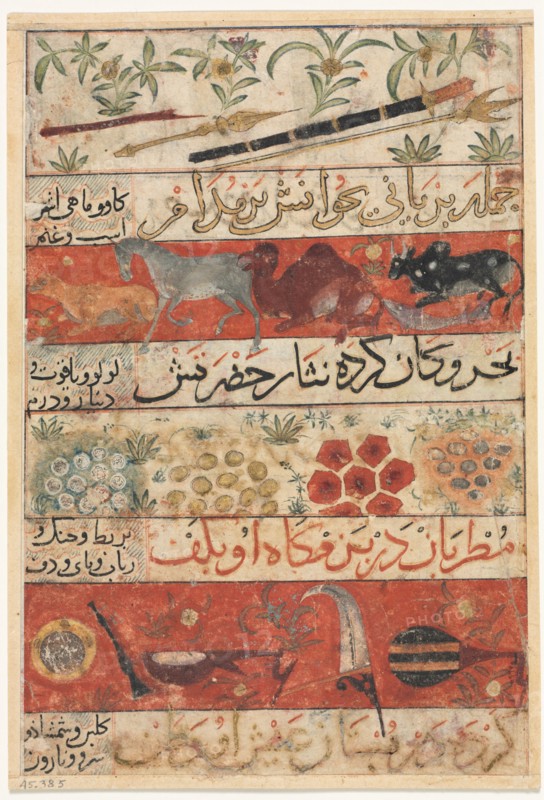 جمله بریانی بخوانش بر مدام
کاو و ماهی اشتر
اسب و غنم
بحر و کان کرده نثار حضرتش
لولو و یاقوت و
دینار و درم
مطربان در بزمکاه او بکف
بربط و چنک و
رباب و نای و دف
کرده در بستان عیش او وطن
کلبن و شمشاد و
سرو و نارون
45.385
PHOTO